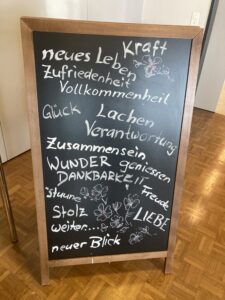 Kraft
neues Leben
Zufriedenheit
Vollkommenheit
Glück
Lachen
Verantwortung
Zusammensein
WUNDER
geniessen
DANKBARKEIT
Freude
Stolz
LIEBE
weiter...
neuer Blick